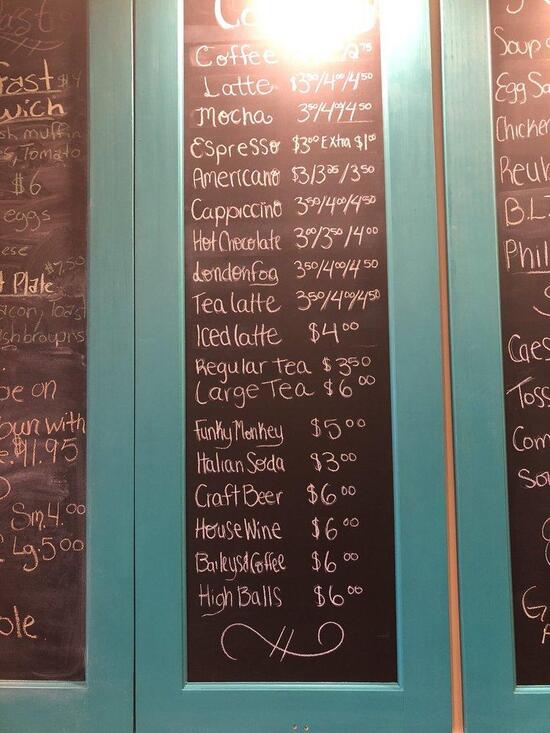 ast
sh muffin
, Tomato
$6
eggs
ese
$7.50
Plate
acon, toast
shbrouwns
be on
bun with
$11.95
Sm. 4.00
Lg. 5.00
ole
Co
Coffee 2.75
Latte $3.50/4.00/4.50
Mocha 3.50/4.00/4.50
Espresso $3.00 Extra $1.00
Americano $3/3.25/3.50
Cappiccino 3.50/4.00/4.50
Hot Chocolate 3.00/3.50/4.00
London fog 3.50/4.00/4.50
Tea latte 3.50/4.00/4.50
Iced latte $4.00
Regular Tea $3.50
Large Tea $6.00
Funky Monkey $5.00
Italian Soda $3.00
Craft Beer $6.00
House Wine $6.00
Baileys & Coffee $6.00
High Balls $6.00
Soup
Egg Sa
Chicken
Reub
B.L.
Phil
Caes
Toss
Com
Sou